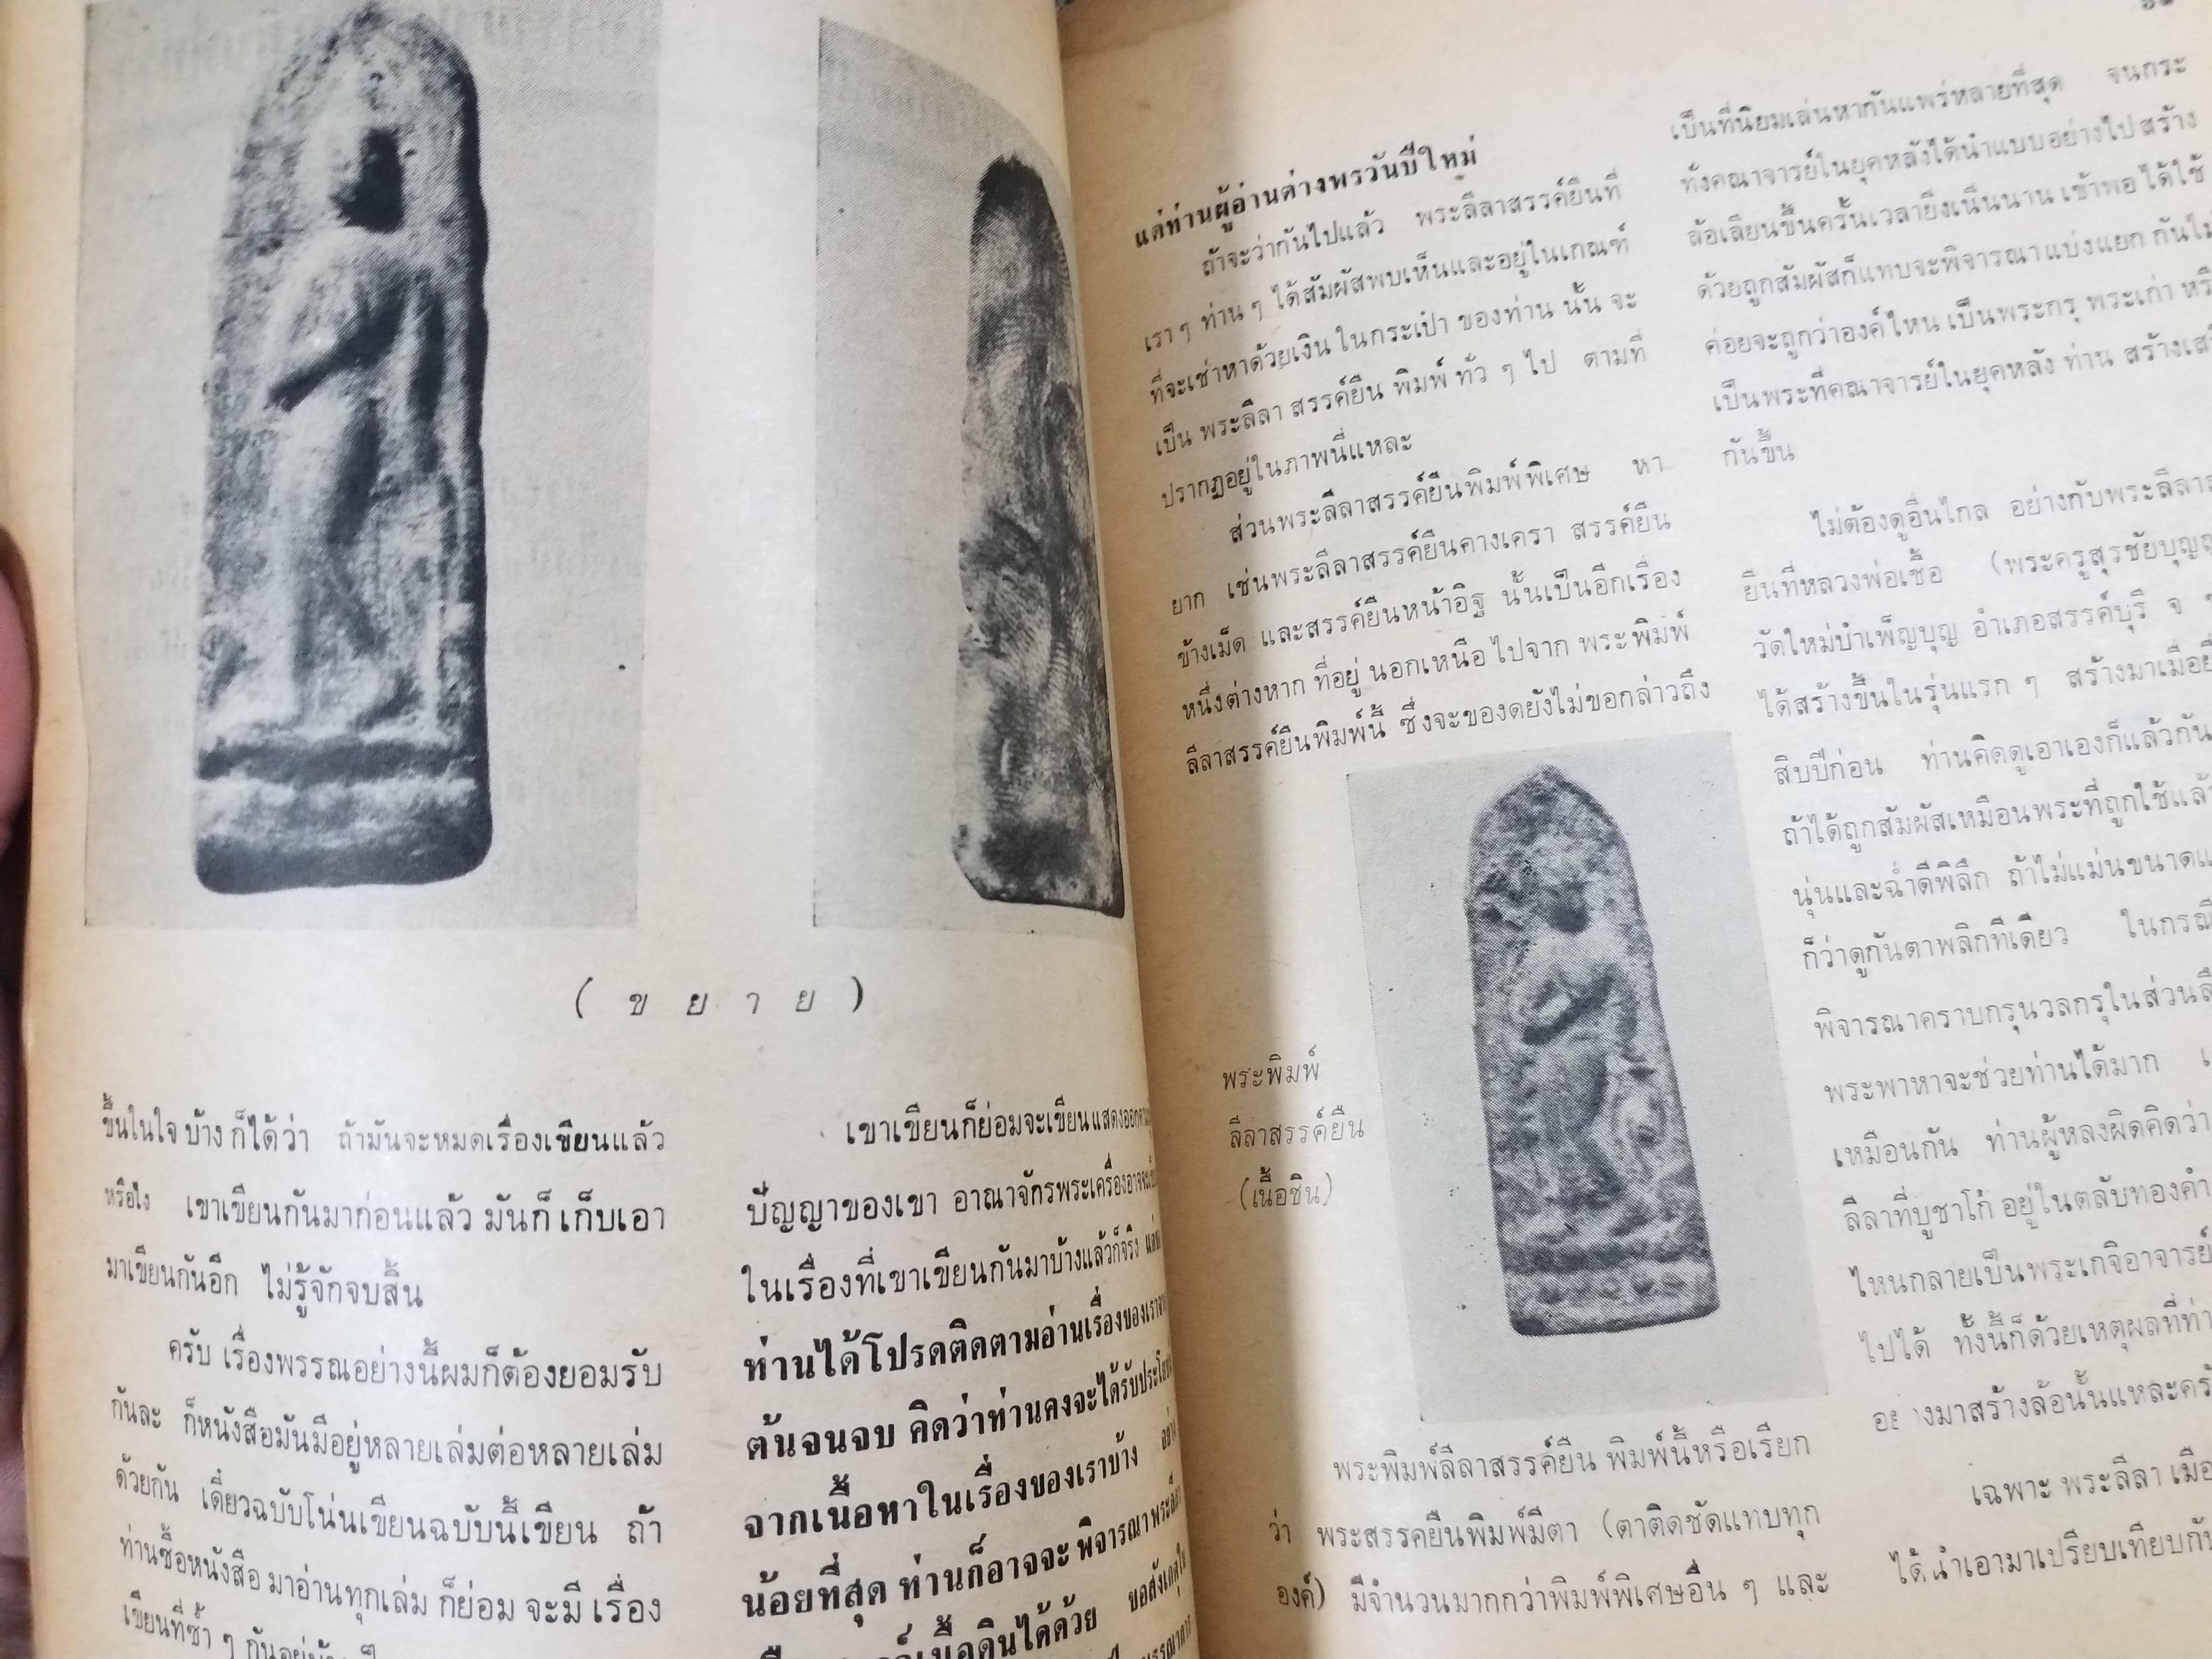 ( ข ย า ย )
ขึ้นในใจ บ้าง ก็ได้ ว่า ถ้ามันจะหมดเรื่องเขียนแล้ว
หรือไง เขาเขียนกันมาก่อนแล้ว มันก็ เก็บเอา
มาเขียนกันอีก ไม่รู้จักจบสิ้น
ครับ เรื่องพรรณอย่างนี้ผมก็ต้องยอมรับ
กันละ ก็หนังสือมันมีอยู่หลายเล่มต่อหลายเล่ม
ด้วยกัน เดี๋ยวฉบับโน่นเขียนฉบับนี้เขียน ถ้า
ท่านซื้อหนังสือ มาอ่านทุกเล่ม ก็ย่อม จะมี เรื่อง
เขียนที่ซ้ำ ๆ กันอยู่
เขาเขียนก็ย่อมจะเขียนแสดงออก
ปัญญาของเขา อาณาจักรพระเครื่องอาจจะ
ในเรื่องที่เขาเขียนกันมาบ้างแล้วก็จริง
ท่านได้โปรดติดตามอ่านเรื่องของเรา
ต้นจนจบ คิดว่าท่านคงจะได้รับประโยชน์
จากเนื้อหาในเรื่องของเราบ้าง
น้อยที่สุด ท่านก็อาจจะ พิจารณาพระลีลา
เนื้อดินได้ด้วย ขอสังเกตุ
แด่ท่านผู้อ่านต่างพรวันปีใหม่
ถ้าจะว่ากันไปแล้ว พระลีลาสรรค์ยืนที่
เรา ๆ ท่าน ๆ ได้สัมผัสพบเห็นและอยู่ในเกณฑ์
ที่จะเช่าหาด้วยเงิน ในกระเป๋า ของท่าน นั้น จะ
เป็น พระลีลา สรรค์ยืน พิมพ์ ทั่ว ๆ ไป ตามที่
ปรากฏอยู่ในภาพนี่แหละ
ส่วนพระลีลาสรรค์ยืนพิมพ์พิเศษ หา
ยาก เช่นพระลีลาสรรค์ยืนคางเครา สรรค์ยืน
ข้างเม็ด และสรรค์ยืนหน้าอิฐ นั้นเป็นอีกเรื่อง
หนึ่งต่างหาก ที่อยู่ นอกเหนือ ไปจาก พระพิมพ์
ลีลาสรรค์ยืนพิมพ์นี้ ซึ่งจะของดยังไม่ขอกล่าวถึง
พระพิมพ์
ลีลาสรรค์ยืน
(เนื้อชิน)
พระพิมพ์ลีลาสรรค์ยืน พิมพ์นี้หรือเรียก
ว่า พระสรรคยืนพิมพ์มีตา (ตาติดชัดแทบทุก
องค์) มีจำนวนมากกว่าพิมพ์พิเศษอื่น ๆ และ
เป็นที่นิยมเล่นหากันแพร่หลายที่สุด จนกระ
ทั่งคณาจารย์ในยุคหลังได้นำแบบอย่างไปสร้าง
ล้อเลียนขึ้นครั้นเวลายิ่งเนิ่นนาน เข้าพอ ได้ใช้
ด้วยถูกสัมผัสก็แทบจะพิจารณาแบ่งแยก กันไม่
ค่อยจะถูกว่าองค์ไหน เป็นพระกรุ พระเก่า
เป็นพระที่คณาจารย์ในยุคหลัง ท่าน สร้าง
กันขึ้น
ไม่ต้องดูอื่นไกล อย่างกับพระลีลา
ยืนที่หลวงพ่อเชื้อ (พระครูสุรชัยบุญ
วัดใหม่บำเพ็ญบุญ อำเภอสรรค์บุรี จ
ได้สร้างขึ้นในรุ่นแรก ๆ สร้างมาเมื่อ
สิบปีก่อน ท่านคิดดูเอาเองก็แล้วกัน
ถ้าได้ถูกสัมผัสเหมือนพระที่ถูกใช้แล้ว
นุ่นและฉ่ำดีพิลึก ถ้าไม่แม่นขนาด
ก็ว่าดูกันตาพลิกทีเดียว ในกรณี
พิจารณาคราบกรุนวลกรุในส่วน
พระพาหาจะช่วยท่านได้มาก
เหมือนกัน ท่านผู้หลงผิดคิดว่า
ลีลาที่บูชาโก้ อยู่ในตลับทองคำ
ไหนกลายเป็นพระเกจิอาจารย์
ไปได้ ทั้งนี้ก็ด้วยเหตุผลที่ท่า
มาสร้างล้อนั้นแหละ
เฉพาะ พระลีลา
ได้นำเอามาเปรียบเทียบกัน